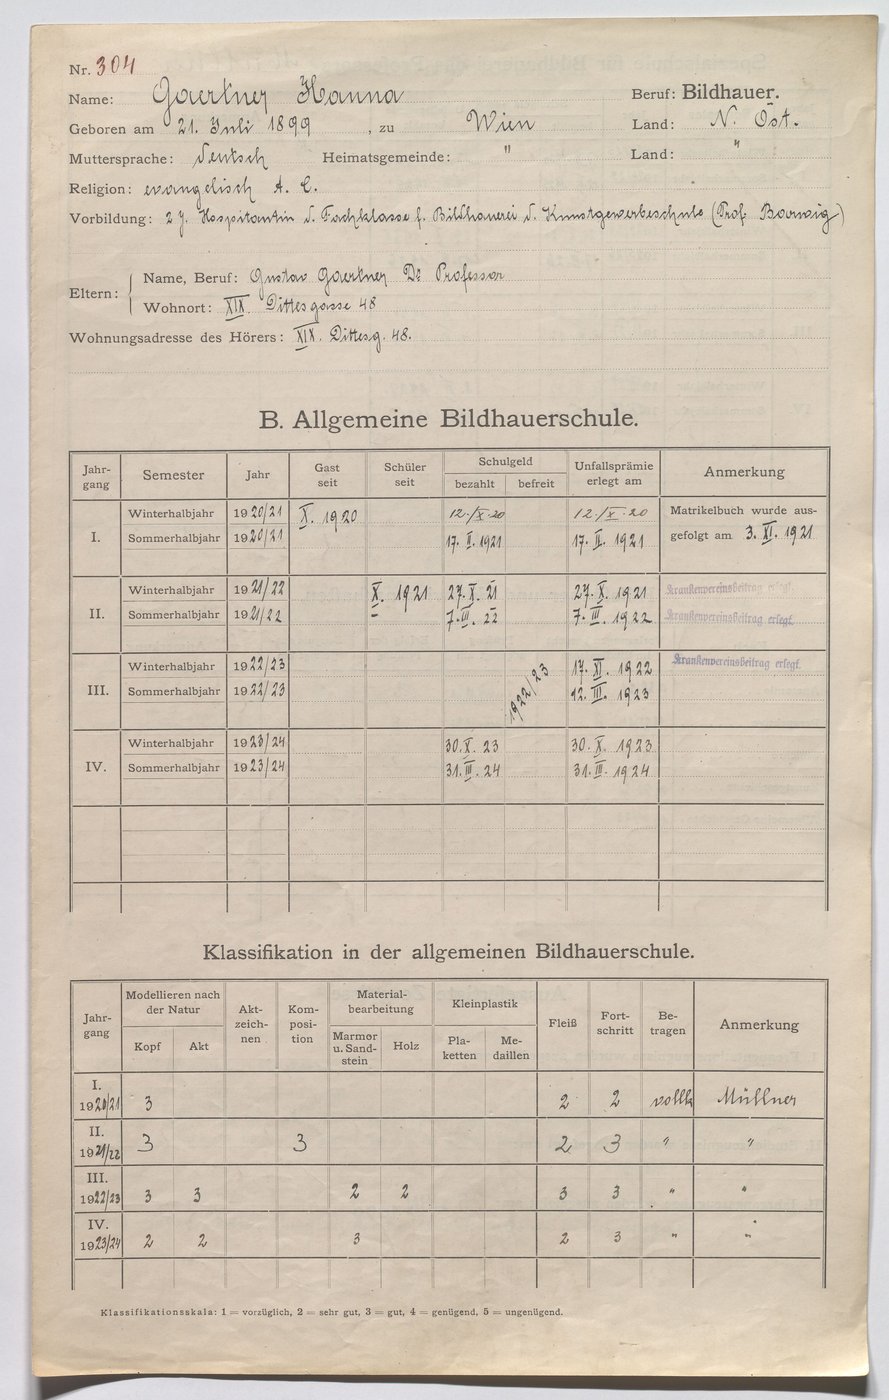 Nr. 304
Name: Gaertner Hanna Beruf: Bildhauer.
Geboren am 21. Juli 1899, zu Wien Land: N. Öst.
Muttersprache: deutsch Heimatsgemeinde: " Land: "
Religion: evangelisch A. C.
Vorbildung: 2 J. Hospitantin d. Fachklasse f. Bildhauerei d. Kunstgewerbeschule (Prof. Barwig)
Eltern: Name, Beruf: Gustav Gaertner Dr Professor
Wohnort: XIX Dittesgasse 48
Wohnungsadresse des Hörers: XIX. Dittesg. 48.
B. Allgemeine Bildhauerschule.
Jahr-gang Semester Jahr Gast seit Schüler seit Schulgeld bezahlt befreit Unfallsprämie erlegt am Anmerkung
I. Winterhalbjahr 1920/21 X. 1920 12./X. 20 12./X. 20 Matrikelbuch wurde aus-
Sommerhalbjahr 1920/21 17. II. 1921 17. II. 1921 gefolgt am 3. XI. 1921
II. Winterhalbjahr 1921/22 X. 1921 27. X. 21 27. X. 1921 Krankenvereinsbeitrag erlegt.
Sommerhalbjahr 1921/22 7. III. 22 7. III. 1922 Krankenvereinsbeitrag erlegt.
III. Winterhalbjahr 1922/23 1922/23 17. XI. 1922 Krankenvereinsbeitrag erlegt.
Sommerhalbjahr 1922/23 12. III. 1923
IV. Winterhalbjahr 1923/24 30. X. 23 30. X. 1923
Sommerhalbjahr 1923/24 31. III. 24 31. III. 1924
Klassifikation in der allgemeinen Bildhauerschule.
Jahr-gang Modellieren nach der Natur Kopf Akt Akt-zeich-nen Kom-posi-tion Material-bearbeitung Marmor u. Sand-stein Holz Kleinplastik Pla-ketten Me-daillen Fleiß Fort-schritt Be-tragen Anmerkung
I. 1920/21 3 2 2 vollk Müllner
II. 1921/22 3 3 2 3 " "
III. 1922/23 3 3 2 2 3 3 " "
IV. 1923/24 2 2 3 2 3 " "
Klassifikationsskala: 1 = vorzüglich, 2 = sehr gut, 3 = gut, 4 = genügend, 5 = ungenügend.